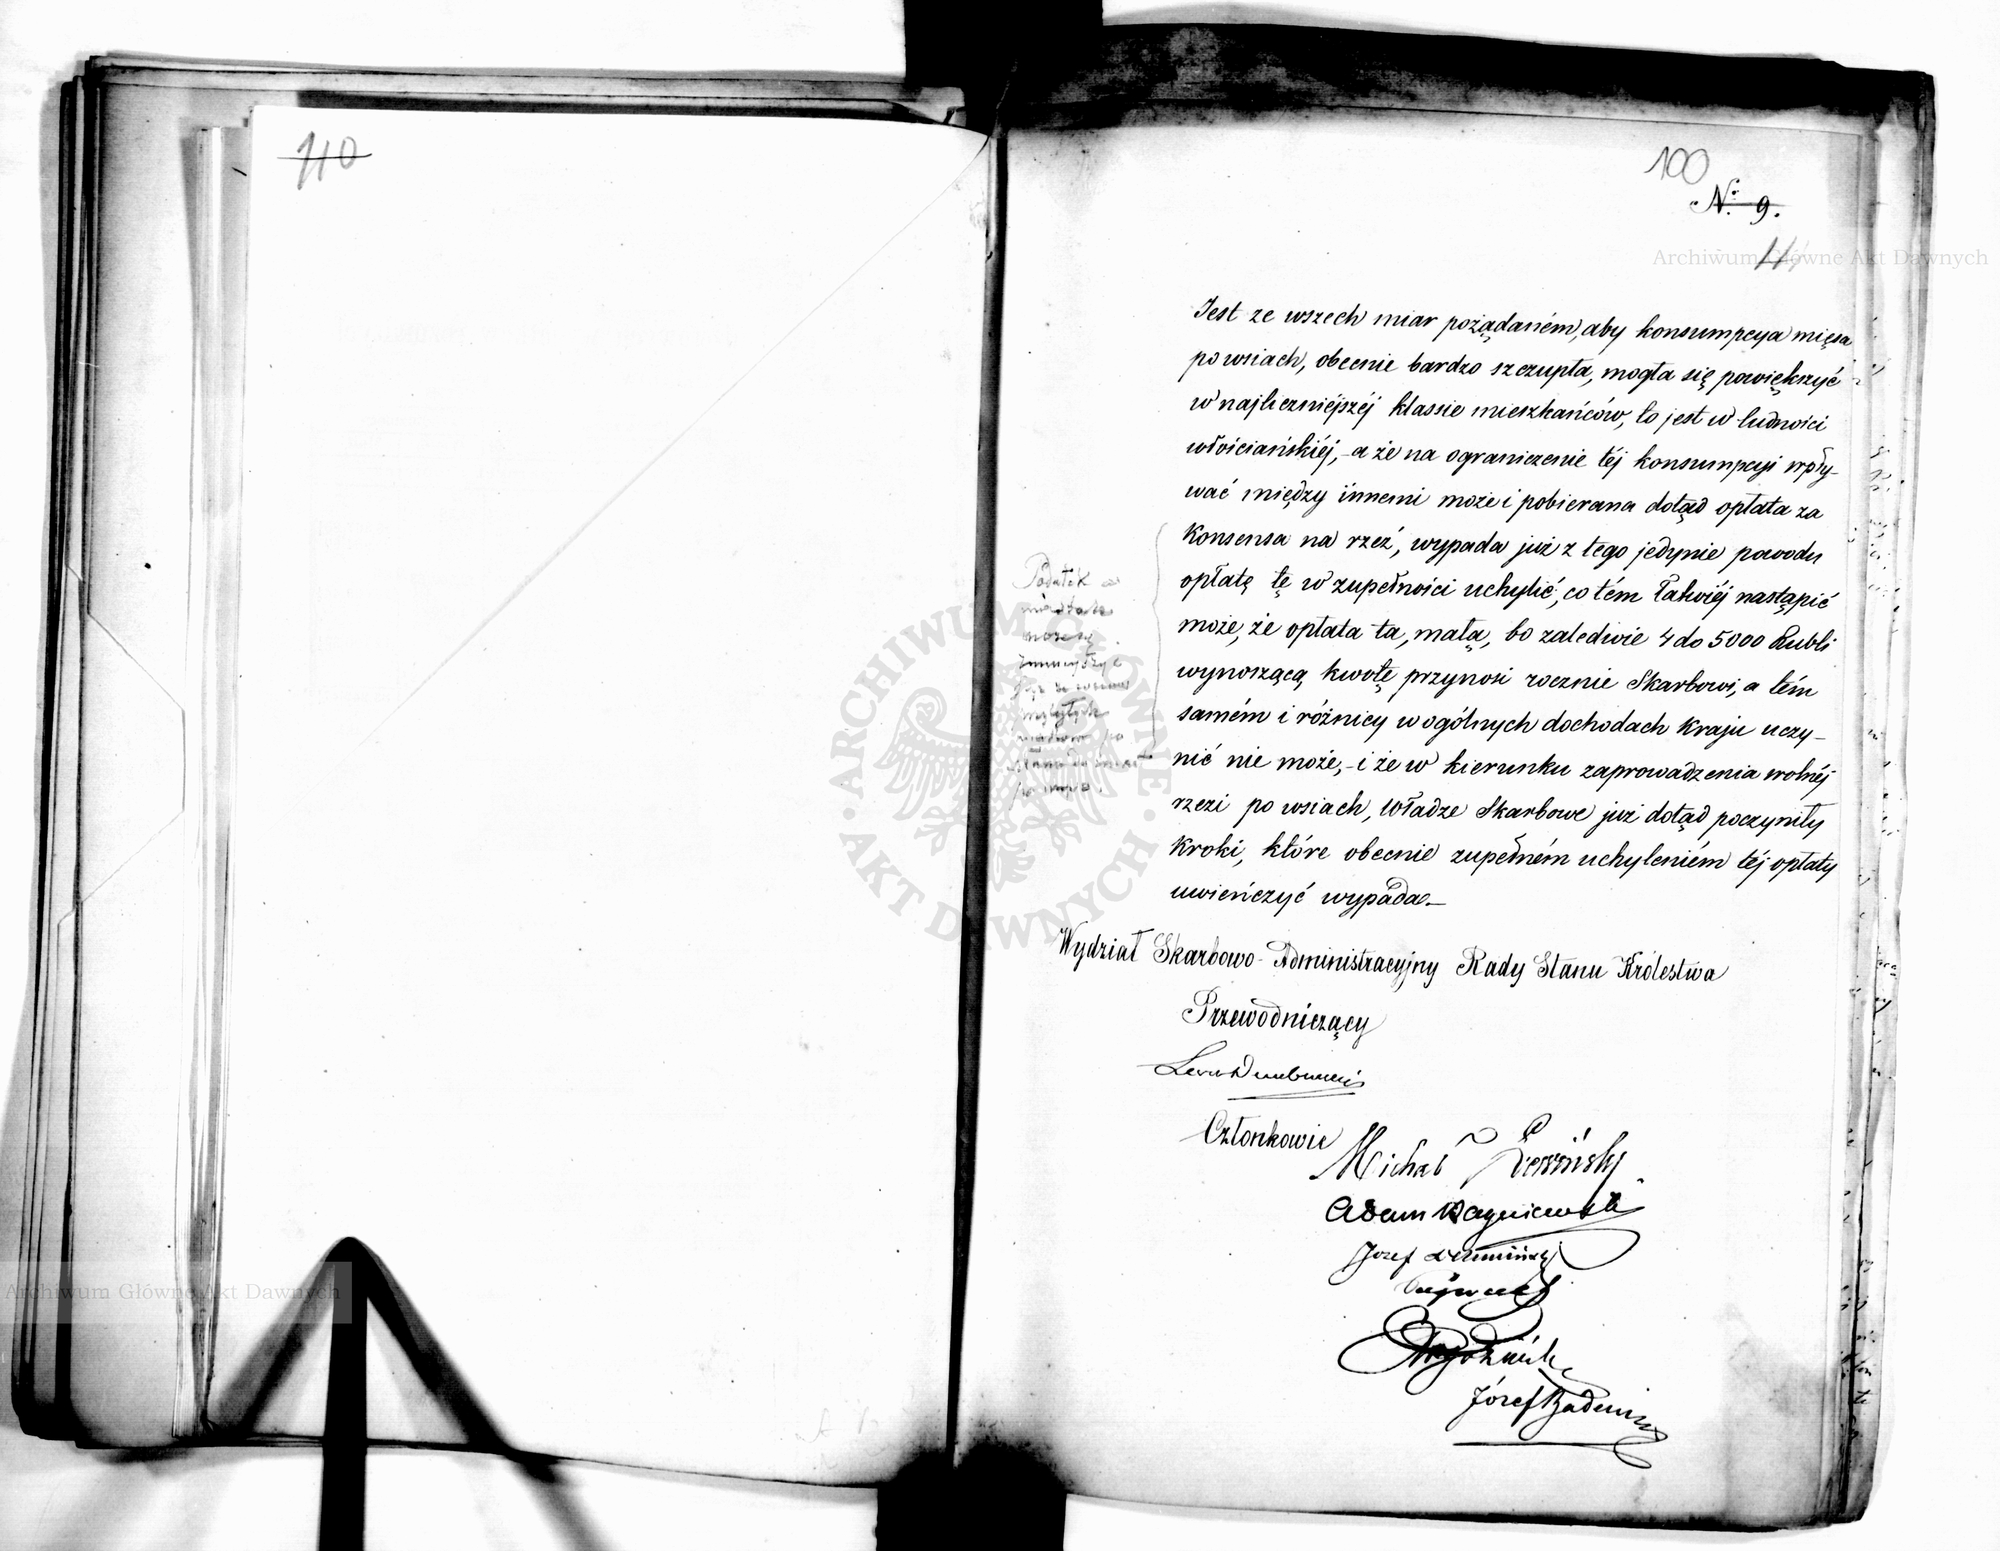 110
100
N.° 9.
Jest ze wszech miar pożądaném, aby konsumpcya mięsa
po wsiach, obecnie bardzo szczupła, mogła się powiększyć
w najliczniéjszéj klassie mieszkańców, to jest w ludności
włościańskiéj, - a że na ograniczenie téj konsumpcyi wpły-
wać między innemi może i pobierana dotąd opłata za
konsensa na rzeź, wypada już z tego jedynie powodu
opłatę tę w zupełności uchylić, co tém łatwiéj nastąpić
może, że opłata ta, małą, bo zaledwie 4 do 5000 Rubli
wynoszącą kwotę przynosi rocznie Skarbowi, a tém
samém i różnicy w ogólnych dochodach kraju uczy-
nić nie może, - i że w kierunku zaprowadzenia wolnéj
rzezi po wsiach, Władze Skarbowe już dotąd poczyniły
kroki, które obecnie zupełném uchyleniém téj opłaty
uwieńczyć wypada.
Podatek
może się
zmniejszyć
Wydział Skarbowo-Administracyjny Rady Stanu Królestwa
Przewodniczący
Członkowie
Michał
Adam
Józef
Józef Badeni
Archiwum Główne Akt Dawnych
Archiwum Główne Akt Dawnych
ARCHIWUM GŁÓWNE AKT DAWNYCH